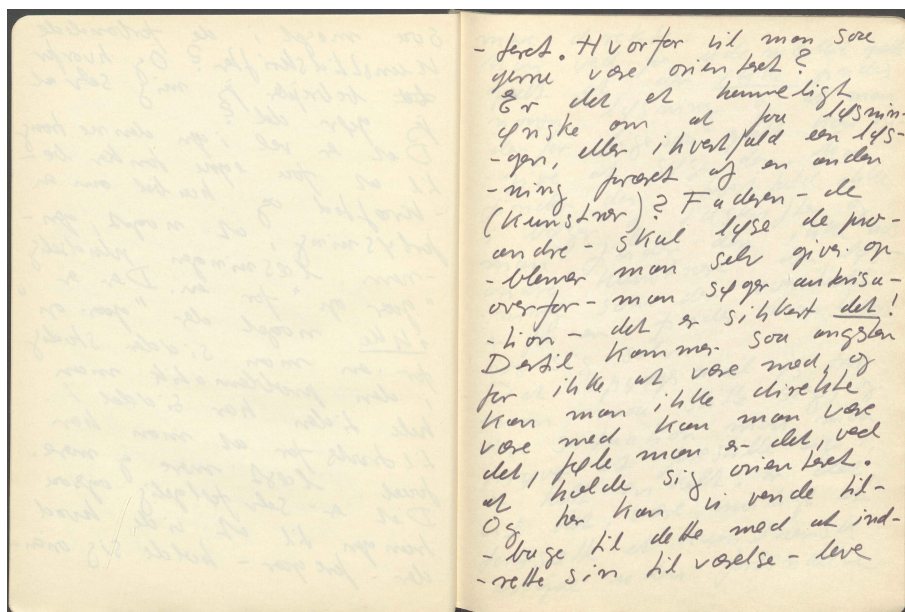 - teret. Hvorfor vil man saa
gerne være orienteret?
Er det et hemmeligt
ønske om at faa løsnin-
- gen, eller ihvertfald een løs-
- ning præet af en anden
(Kunstner)? Faderen - de
andre - skal løse de pro-
- blemer man selv giver op
overfor - man søger autorisa-
- tion - det er sikkert det!
Dertil kommer saa angsten
for ikke at være med, og
kan man ikke direkte
være med kan man være
det, føle man er det, ved
at holde sig orienteret.
Og her kan vi vende til-
- bage til dette med at ind-
- rette sin tilværelse - leve